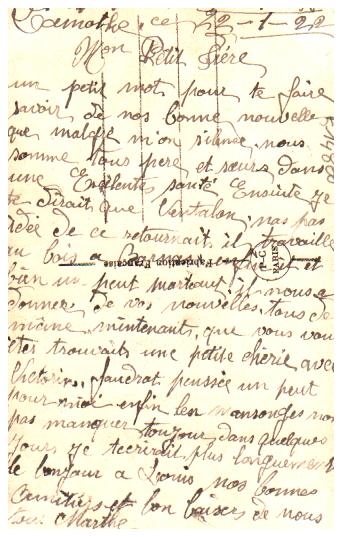 Lamothe, ce 22-1-22
Mon Petit frére
un petit mot pour te faire
savoir de nos bonne nouvelle
que malgre mon silence, nous
somme tous pere et sœurs dans
une Exelente santé Ensuite je
te dirait que Ventalon, nas pas
idée de ce retournait il travaille
au bois a et
bien un peut marteau il nous a
donner de vos nouvelles tous de
même, mintenants, que vous vous
êtes trouvaits une petite chérie avec
Victorin, faudrat pensée un peut
pour moi enfin les mansonges nons
pas manquer toujour dans quelques
jours je tecrirait plus longuement
le bonjour a Louis nos bonnes
amitiés et bon baisers de nous
tous Marthe
Fabrication Française
P-C
PARIS